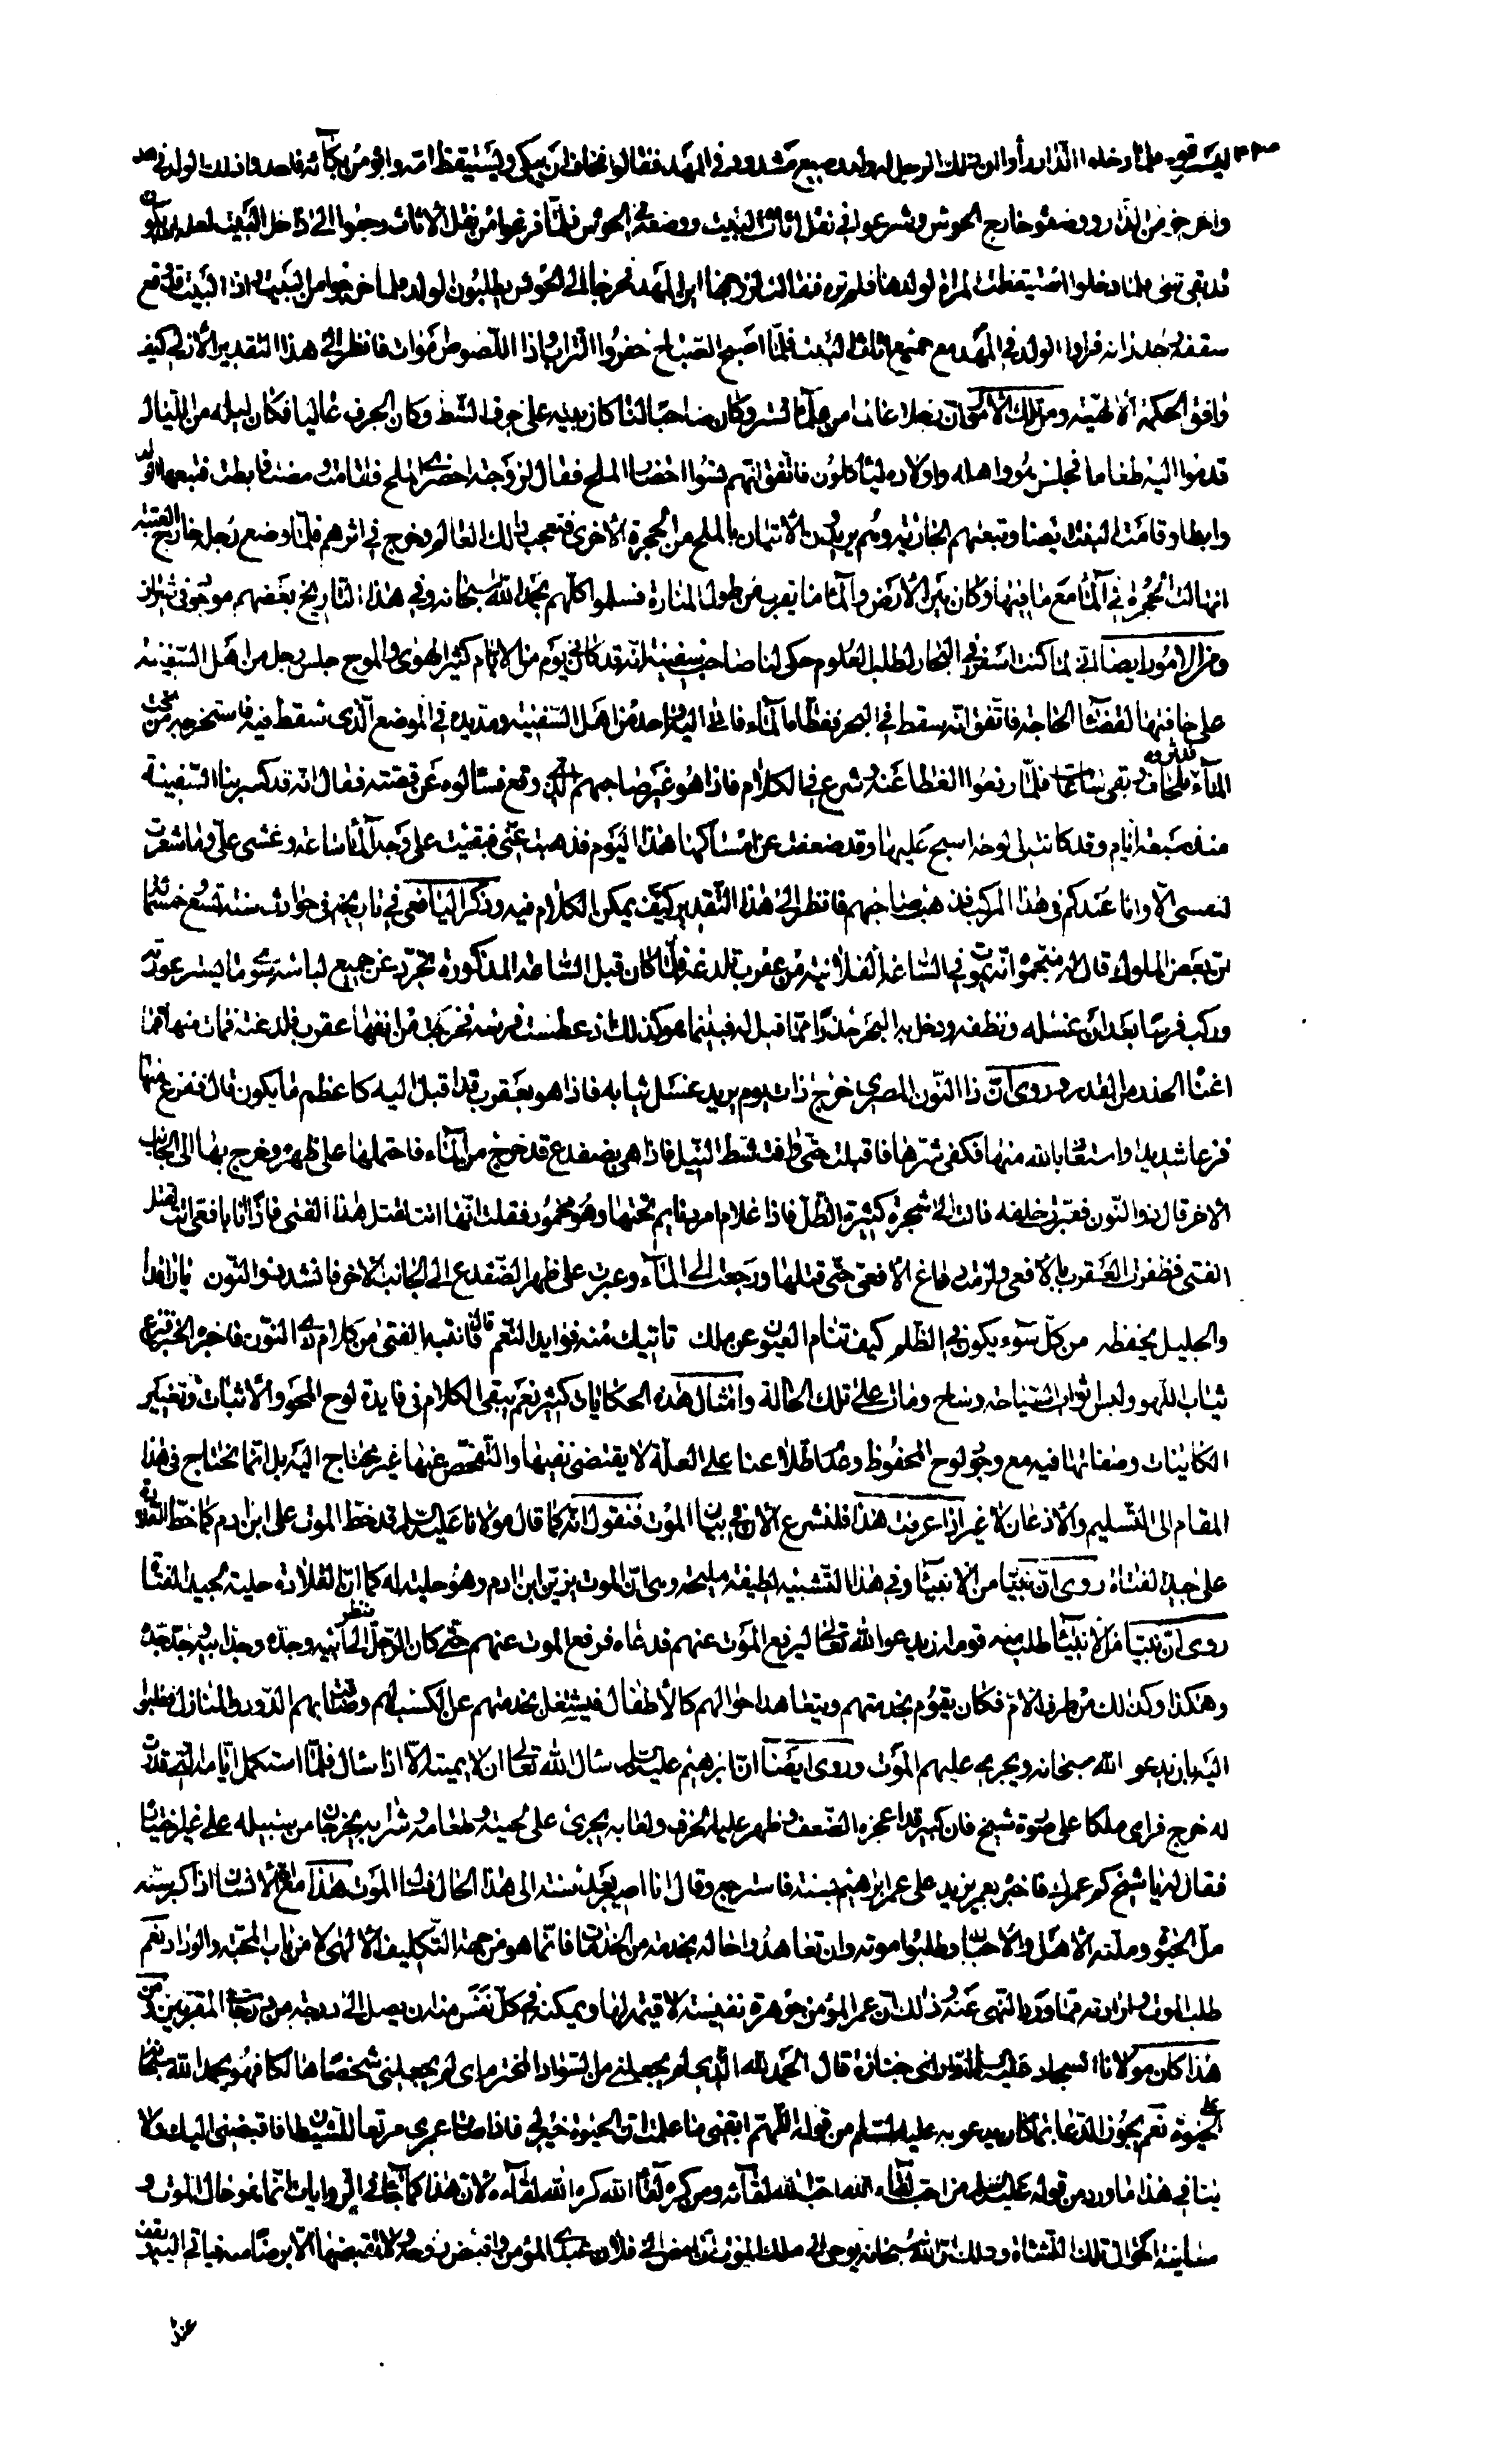 ليسرقوه فلما دخلوا الدار رأوا ان ذلك الرجل له ولد صبيع مشدود في المهد فقالوا نخاف ان يبكي ويستيقظ امه وابوه من بكائه فاخذوا ذلك الولد في مهده
واخرجوه من الدار ووضعوه خارج الحوش وشرعوا في نقل اثاث البيت ووضعه في الحوش فلما فرغوا من نقل الأثاث رجعوا الى داخل البيت لعله ان يكون
قد بقي شئ فلما دخلوا استيقظت المراة لولدها فلم تره فقالت لزوجها اين المهد فخرجا الى الحوش يطلبون الولد فلما خرجوا من البيت واذا البيت قد وقع
سقفه وجدرانه فراوا الولد في المهد مع جميع اثاث البيت فلما اصبح الصباح حفروا التراب واذا اللصوص اموات فانظر الى هذا التقدير الأزلي كيف
وافق الحكمة الالهية ومن تلك الأمور ان رجلا عالما من علماء تستر وكان صاحبا لنا كان بيته على جرف الشط وكان الجرف عاليا فكان ليلة من الليالي
قدموا اليه طعاما فجلس هو واهله واولاده لياكلون فاتفق انهم نسوا احضار الملح فقال لزوجته احضري الملح فقامت ومضت فابطت فتبعها الولد
وابطا وقامت البنت ايضا وتبعتهم الجارية وهم يريدون الأتيان بالملح من الحجرة الأخرى فتعجب ذلك العالم وخرج في اثرهم فلما وضع رجله خارج العتبة
انهالت الحجرة في الماء مع ما فيها وكان بين الأرض والماء ما يقرب من طول المنارة فسلموا كلهم بحمد الله سبحانه وفي هذا التاريخ بعضهم موجود في شيراز
ومن الامور ايضا اني لما كنت اسفر في البحار لطلب العلوم حكى لنا صاحب سفينة انه قد كان في يوم من الايام كثير الهوى والموج جلس رجل من اهل السفينة
على حافتها لقضاء الحاجة فاتفق انه سقط في البحر فغطاه الماء فاتى اليه واحد من اهل السفينة ومد يده في الموضع الذي سقط فيه فاستخرجه من تحت
الماء فدثروه بلحاف وبقي ساعة فلما رفعوا الغطا عنه وشرع في الكلام فاذا هو غير صاحبهم الذي وقع فسالوه عن قصته فقال انه قد كسر بنا السفينة
منذ سبعة ايام وقد كانت لي لوحة اسبح عليها وقد ضعفت عن امساكها هذا اليوم فذهبت عني فبقيت على وجه الماء ساعة وغشي علي وما شعرت
لنفسي الا وانا عندكم في هذا المركب فذهب صاحبهم فانظر الى هذا التقدير كيف يمكن الكلام فيه وذكر اليافعي في تاريخه في حوادث سنة تسع خمسمائة
ان بعض الملوك قال له منجموه انه يموت في الساعة الفلانية من عقرب تلدغه فلما كان قبل الساعة المذكورة تجرد عن جميع لباسه سوى ما يستر عورته
وركب فرسا بعد ان غسله ونظفه ودخل به البحر حذرا مما قيل له فبينما هو كذلك اذ عطست فرسه فخرجت من انفها عقرب فلدغته فمات منها فما
اغنى الحذر من القدر وروى ان ذا النون المصري خرج ذات يوم يريد غسل ثيابه فاذا هو بعقرب قد اقبل اليه كاعظم ما يكون قال ففزع منها
فزعا شديدا واستعاذ بالله منها فكفي شرها فاقبلت حتى وافت شط النيل فاذا هي بضفدع قد خرج من الماء فاحتملها على ظهره وخرج بها الى الجانب
الاخر قال ذو النون فعبرت خلفه فاتت الى شجرة كثيرة الظل فاذا غلام امرد نايم تحتها وهو مخمور فقلت انها اتت لقتل هذا الفتى فاذا انا بافعى اتت لقتل
الفتى فظفرت العقرب بالأفعى ولزمت دماغ الأفعى حتى قتلها ورجعت الى الماء وعبرت على ظهر الضفدع الى الجانب الاخر فانشد ذو النون يا راقدا
والجليل يحفظه من كل سوء يكون في الظلم كيف تنام العيون عن ملك تاتيك منه فوايد النعم قال فانتبه الفتى من كلام ذي النون فاخبره الخبر فنزع
ثياب اللهو ولبس ثواب السياحة وساح ومات على تلك الحالة وامثال هذه الحكايات كثير نعم يبقى الكلام في فايدة لوح المحو والأثبات وتغيير
الكاينات وصفاتها فيه مع وجود لوح المحفوظ وعدم اطلاعنا على العلة لا يقتضي نفيها والتفحص عنها غير محتاج اليه بل انما نحتاج في هذا
المقام الى التسليم والأذعان لا غير اذا عرفت هذا فلنشرع الان في بيان الموت فنقول انه كما قال مولانا عليه السلم قد خط الموت على ابن ادم كما خط القلادة
على جيد الفتاة روى ان نبيا من الانبياء وفي هذا التشبيه لطيفة مليحة وهي ان الموت يزين ابن ادم وهو حلية له كما ان القلادة حلية لجيد الفتاة
روى ان نبيا من الانبياء طلب منه قومه ان يدعو الله تعالى ليرفع الموت عنهم فدعاه فرفع الموت عنهم حتى كان الرجل ينظر الى ابيه وجده وجد ابيه وجد جده
وهكذا وكذلك من طرف الام فكان يقوم بخدمتهم ويتعاهد احوالهم كالأطفال فيشتغل بخدمتهم عن الكسب لهم وضاقت بهم الدور والمنازل فطلبوا
اليه ان يدعو الله سبحانه ويجري عليهم الموت وروى ايضا ان ابرهيم عليه السلم سال الله تعالى ان لا يميته الا اذا سال فلما استكمل ايامه التي قدرت
له خرج فراى ملكا على صورة شيخ فان كبير قد اعجزه الضعف وظهر عليه الخرف ولعابه يجري على لحيته وطعامه وشرابه يخرجان من سبيله على غير اختياره
فقال له يا شيخ كم عمرك فاخبره بعمر يزيد على عمر ابرهيم بسنة فاسترجع وقال انا اصير بعد سنة الى هذا الحال فسال الموت هذا مع ان الأنسان اذا كبر سنه
مل الحيوة وملته الأهل والأحباب وطلبوا موته وان تعاهدوا حاله بخدمة من الخدمات فانما هو من جهة التكليف الألهي لا من باب المحبة والوداد نعم
طلب الموت وارادته مما ورد النهي عنه وذلك ان عمر المؤمن جوهرة نفيسة لا قيمة لها ويمكنه في كل نفس منه ان يصل الى درجة من درجات المقربين ومن
هذا كان مولانا السجاد عليه السلم اذا راى جنازة قال الحمد لله الذي لم يجعلني من السواد المخترم اي لم يجعلني شخصا هالكا فهو يحمد الله سبحانه
على الحيوة نعم يجوز الدعا بما كان يدعو به عليه السلم من قوله اللهم ابقني ما علمت ان الحيوة خير لي فاذا صار عمري مرتعا للشيطان فاقبضني اليك ولا
ينافي هذا ما ورد من قوله عليه السلم من احب لقاء الله احب الله لقائه ومن كره لقاء الله كره الله لقاءه لان هذا كما جاء في الروايات انما هو حال الموت و
معاينة احوال تلك النشاة وذلك ان الله سبحانه يوحي الى ملك الموت ان امض الى فلان عبدي المؤمن واقبض روحه ولا تقبضها الا برضا منه فياتي اليه فيقف
عند